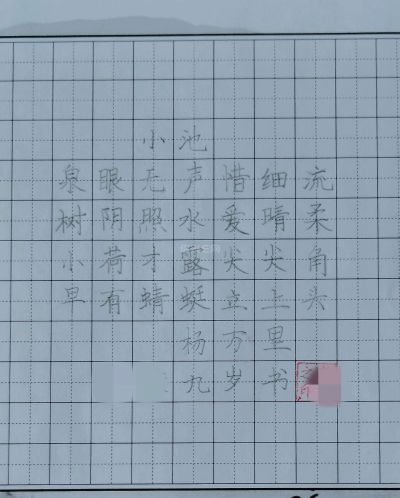 小池
泉眼无声惜细流
树阴照水爱晴柔
小荷才露尖尖角
早有蜻蜓立上头
杨万里
九岁书